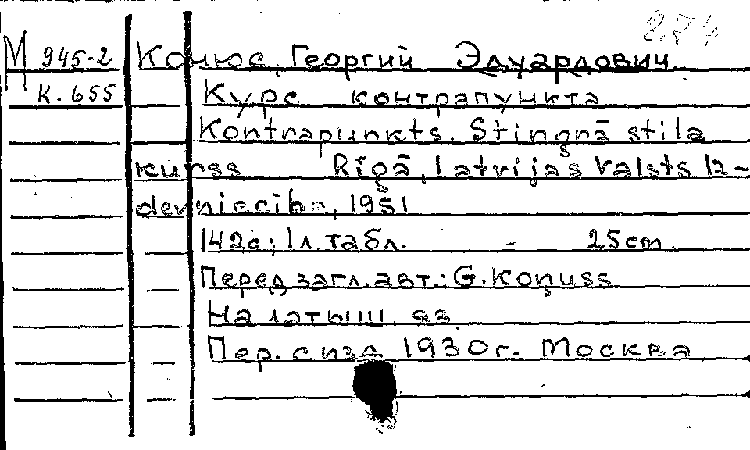 274
М 945-2 Конюс, Георгий Эдуардович.
К. 655 Курс контрапункта
Kontrapunkts. Stingrā stila
kurss Rīgā, Latvijas Valsts iz-
devniecība, 1951
142с; 1л. табл. - 25cm
Перед загл. авт.: G. Konuss
На латыш. яз.
Пер. с изд. 1930г. Москва